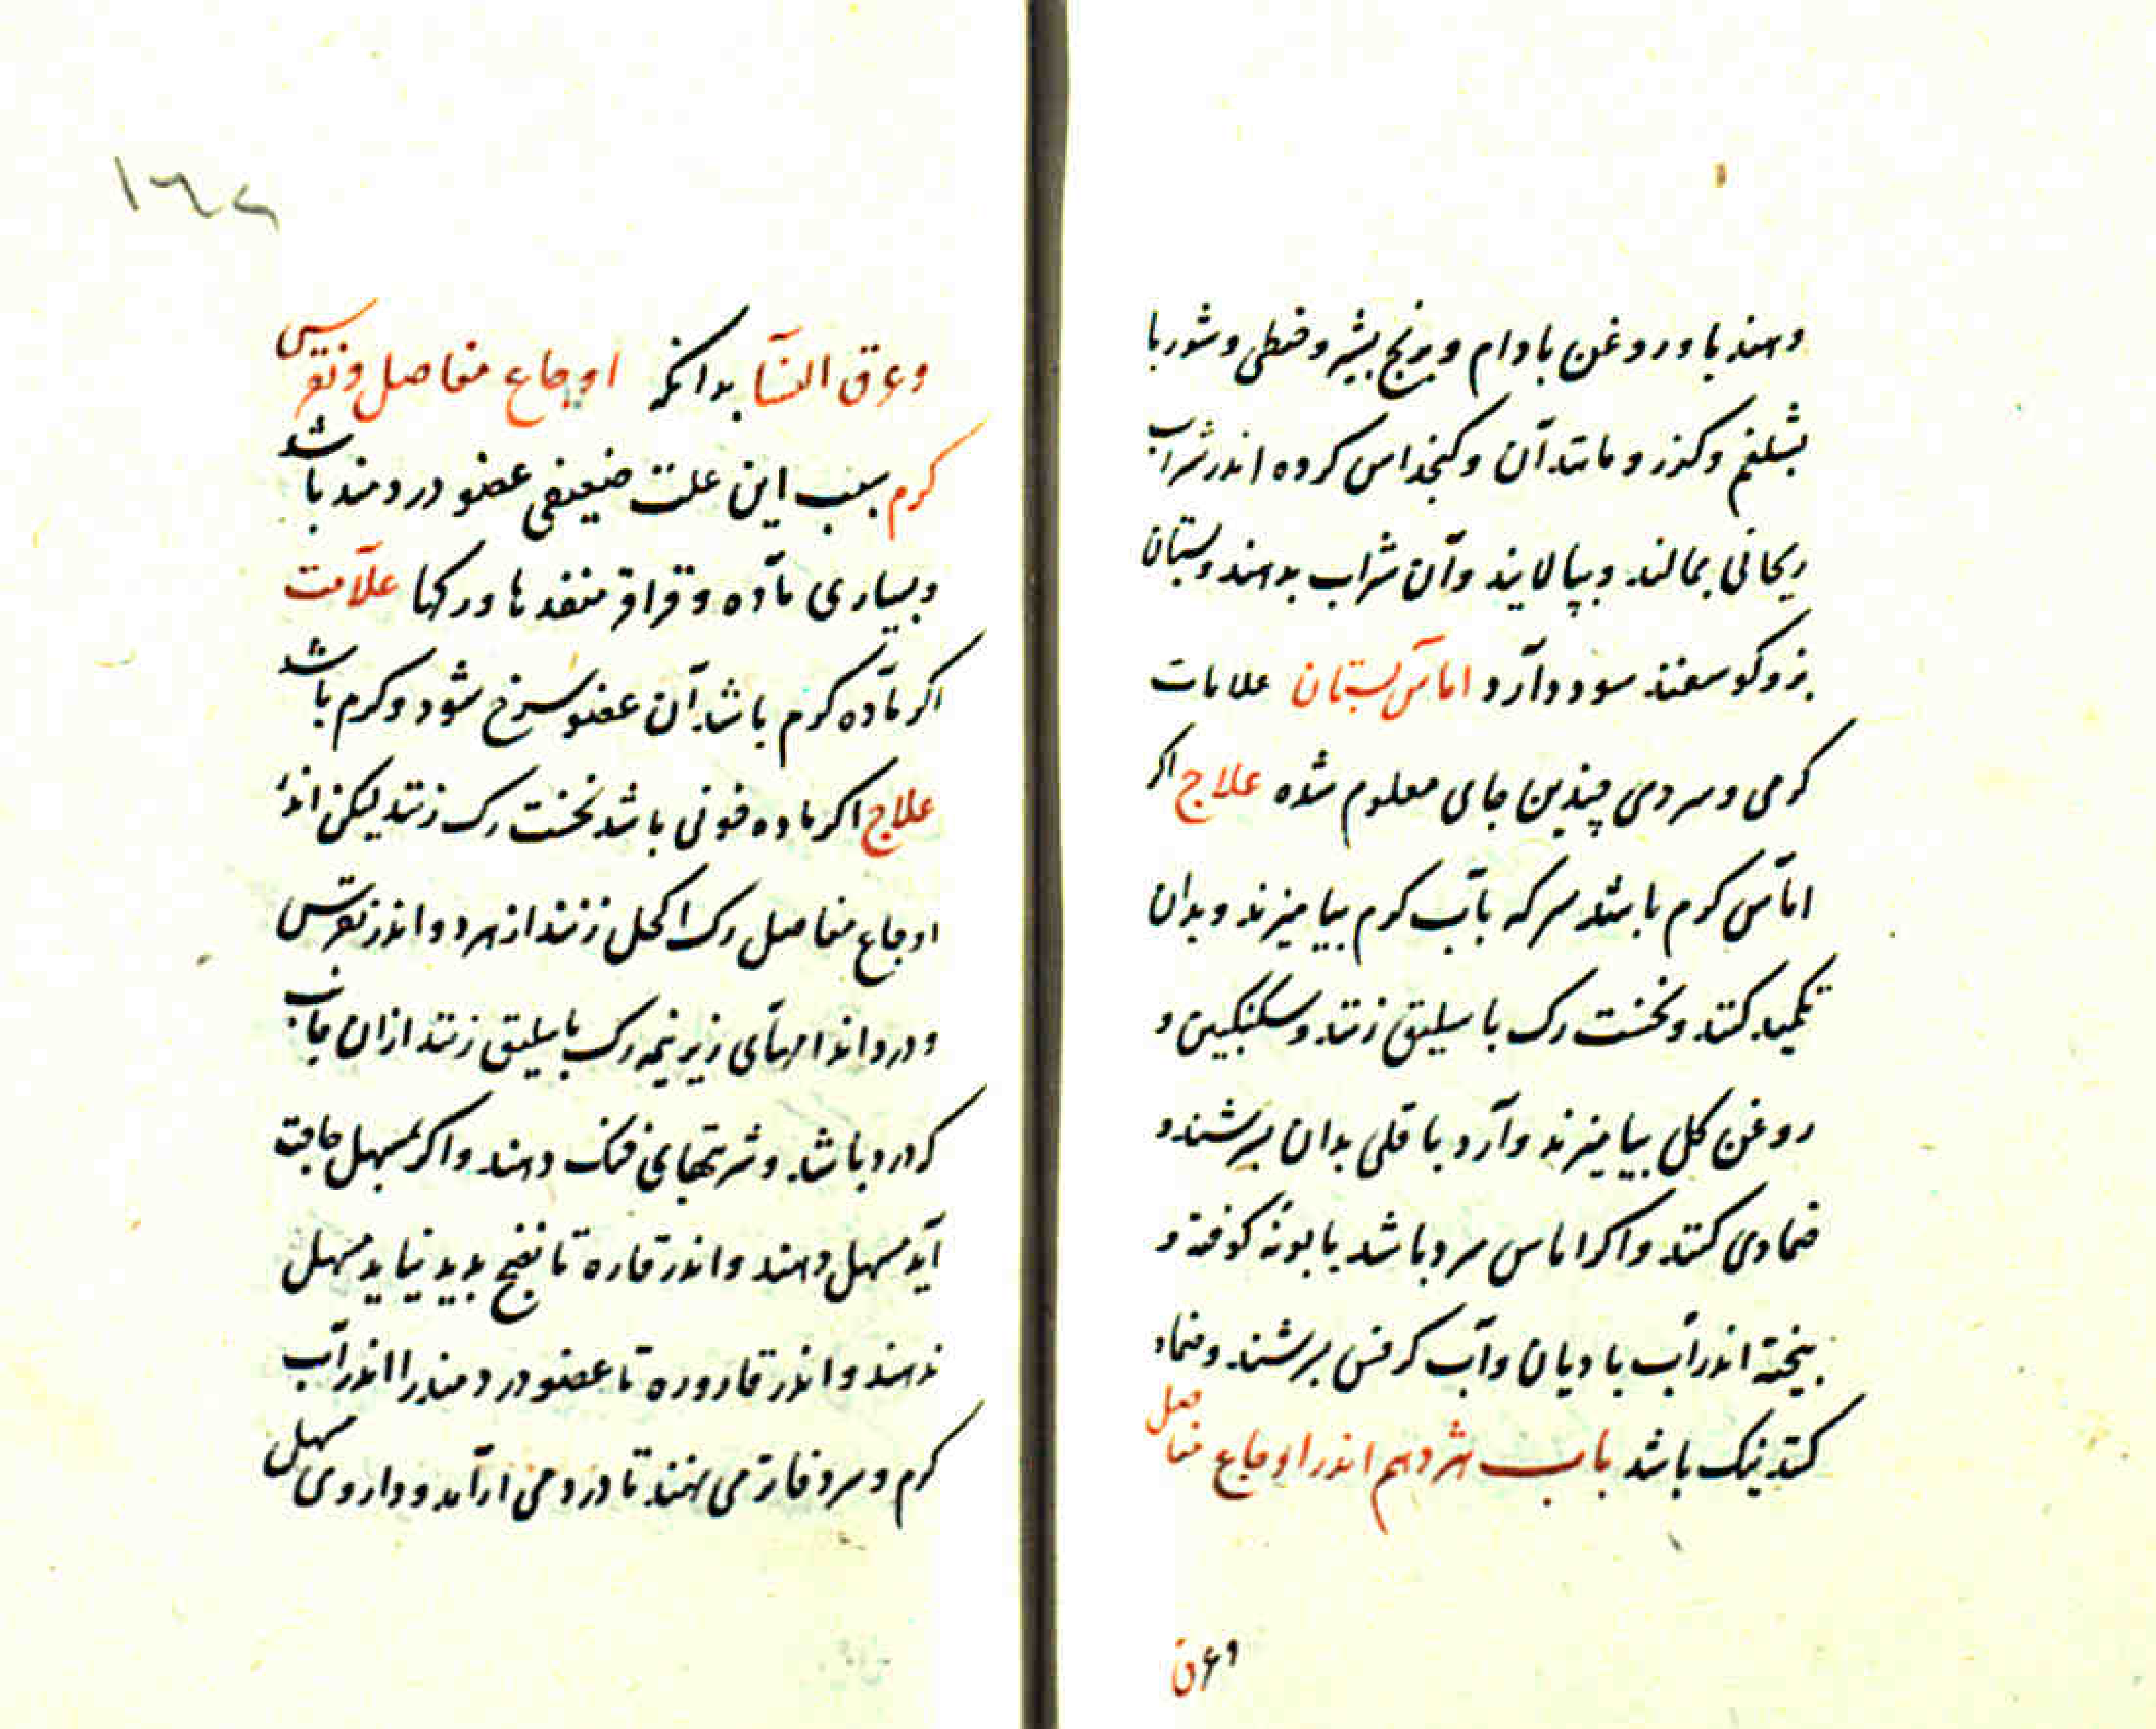 دهند با و روغن بادام و برنج بشیر و خطی و شوربا
بشلغم و کذر و مانند آن و کنجد اس کرده اندر شراب
ریحانی بمالند و بپالایند و آن شراب بدهند و پستان
بز و کوسفند سود دارد اماس پستان علامات
کرمی و سردی چندین جای معلوم شده علاج اکر
اماس کرم باشد سرکه بآب کرم بیامیزند و بدان
تکمید کنند و نخست رک باسلیق زنند و سکنکبین و
روغن کل بیامیزند و آرد باقلی بدان بسرشند و
ضمادی کنند و اکر اماس سرد باشد بابونه کوفته و
بیخته اندر آب بادیان و آب کرفس بسرشند و ضماد
کنند نیک باشد باب هژدهم اندر اوجاع مفاصل
و عرق
١٦٧
و عرق النسآ بدانکه اوجاع مفاصل و نقرس
کرم سبب این علت ضعیفی عضو دردمند باشد
و بسیاری مآده و فراخ منفذها و رکها علآمت
اکر مآده کرم باشد آن عضو سرخ شود و کرم باشد
علاج اکر ماده خونی باشد نخست رک زنند لیکن اندر
اوجاع مفاصل رک اکحل زنند از هر دو اندر نقرس
و درد اندامهآی زیر نیمه رک باسلیق زنند ازان جانب
که درد باشد و شربتهای خنک دهند و اکر بمسهل حاجت
آید مسهل دهند و اندر قاره تا نضج بدید نیاید مسهل
ندهند و اندر قاروره تا عضو دردمند را اندر آب
کرم و سرد فاتر می نهند تا درد می ارآمد و داروی مسهل